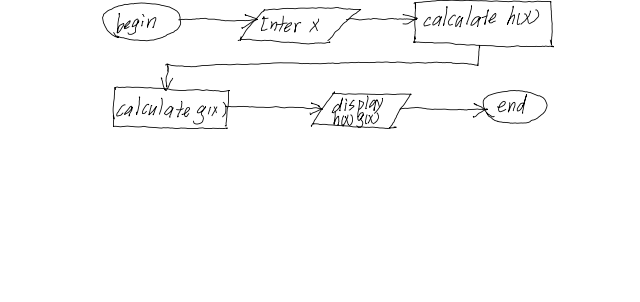 begin
Enter x
calculate h(x)
calculate g(x)
display
h(x) g(x)
end